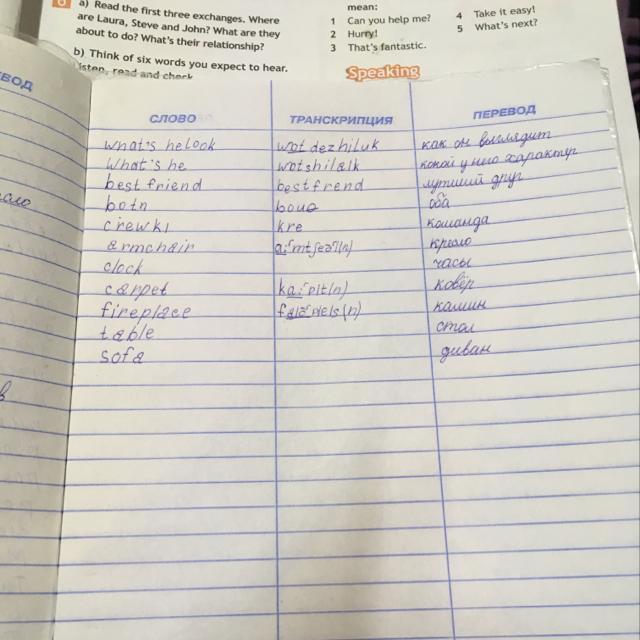 6 a) Read the first three exchanges. Where
are Laura, Steve and John? What are they
about to do? What's their relationship?
b) Think of six words you expect to hear.
Listen, read and check
mean:
1 Can you help me?
2 Hurry!
3 That's fantastic.
4 Take it easy!
5 What's next?
Speaking
СЛОВО ТРАНСКРИПЦИЯ ПЕРЕВОД
what's he look wot dezhiluk как он выглядит
What's he wotshilalk какой у него характер
best friend bestfrend лутший друг
botn bouo оба
crewkl kre команда
armchair a:mtʃeə(n) кресло
clock часы
carpet ka:pit(n) ковёр
fireplace faiəpleis(n) камин
table стол
sofa диван